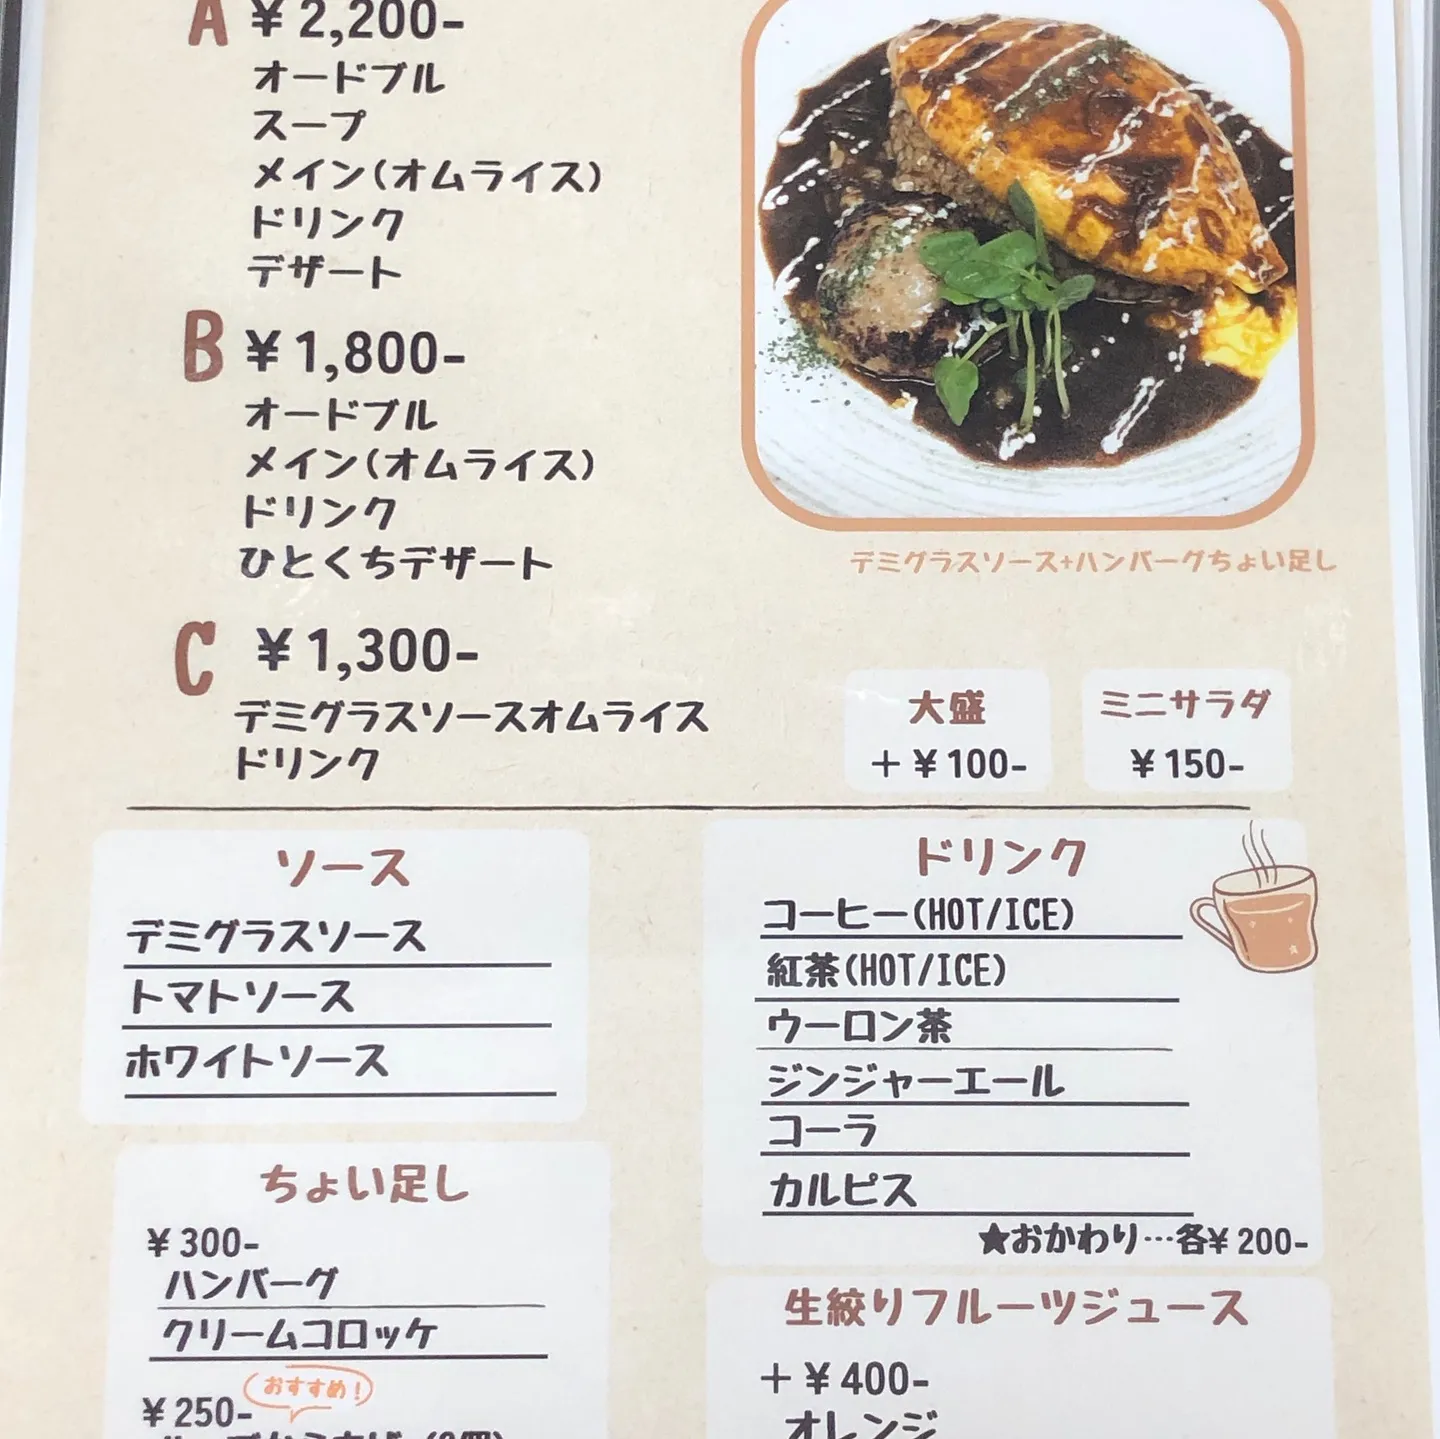 A ¥2,200-
オードブル
スープ
メイン(オムライス)
ドリンク
デザート
B ¥1,800-
オードブル
メイン(オムライス)
ドリンク
ひとくちデザート
デミグラスソース+ハンバーグちょい足し
C ¥1,300-
デミグラスソースオムライス
ドリンク
大盛
+¥100-
ミニサラダ
¥150-
ソース
デミグラスソース
トマトソース
ホワイトソース
ドリンク
コーヒー(HOT/ICE)
紅茶(HOT/ICE)
ウーロン茶
ジンジャーエール
コーラ
カルピス
★おかわり…各¥200-
ちょい足し
¥300-
ハンバーグ
クリームコロッケ
おすすめ!
¥250-
生絞りフルーツジュース
+¥400-
オレンジ